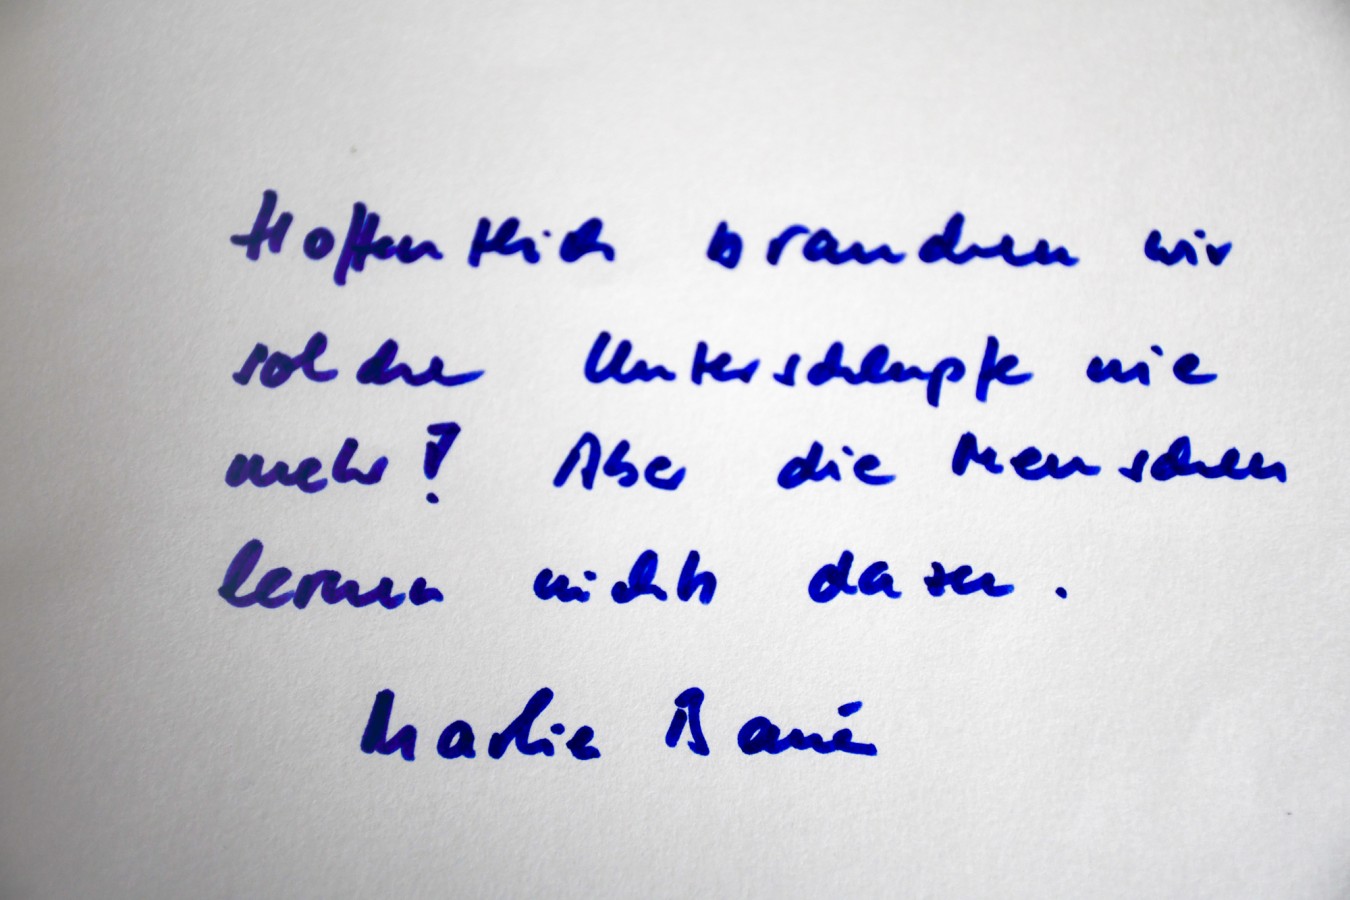 Hoffentlich brauchen wir
solche Unterschlupfe nie
mehr! Aber die Menschen
lernen nichts dazu.
Marlie